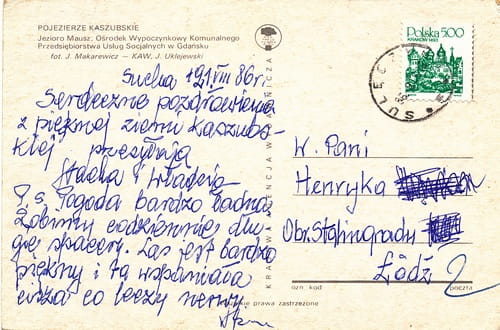 POJEZIERZE KASZUBSKIE
Jezioro Mausz. Ośrodek Wypoczynkowy Komunalnego
Przedsiębiorstwa Usług Socjalnych w Gdańsku
fot. J. Makarewicz - KAW, J. Uklejewski
Polska 500
SULĘCZ
Sucha 21 VIII 86 r.
Serdeczne pozdrowienia
z pięknej ziemi Kaszubs-
kiej przesyłają
Stacha i Władzia
P.s. Pogoda bardzo ładna
Robimy codziennie dłu-
gie spacery. Las jest bardzo
piękny i ta wspaniała
cisza co leczy nerwy.
KRAJOWA AGENCJA WYDAWNICZA
W. Pani
Henryka
Obr. Stalingradu
Łódź
ozn. kod
poczta
prawa zastrzeżone